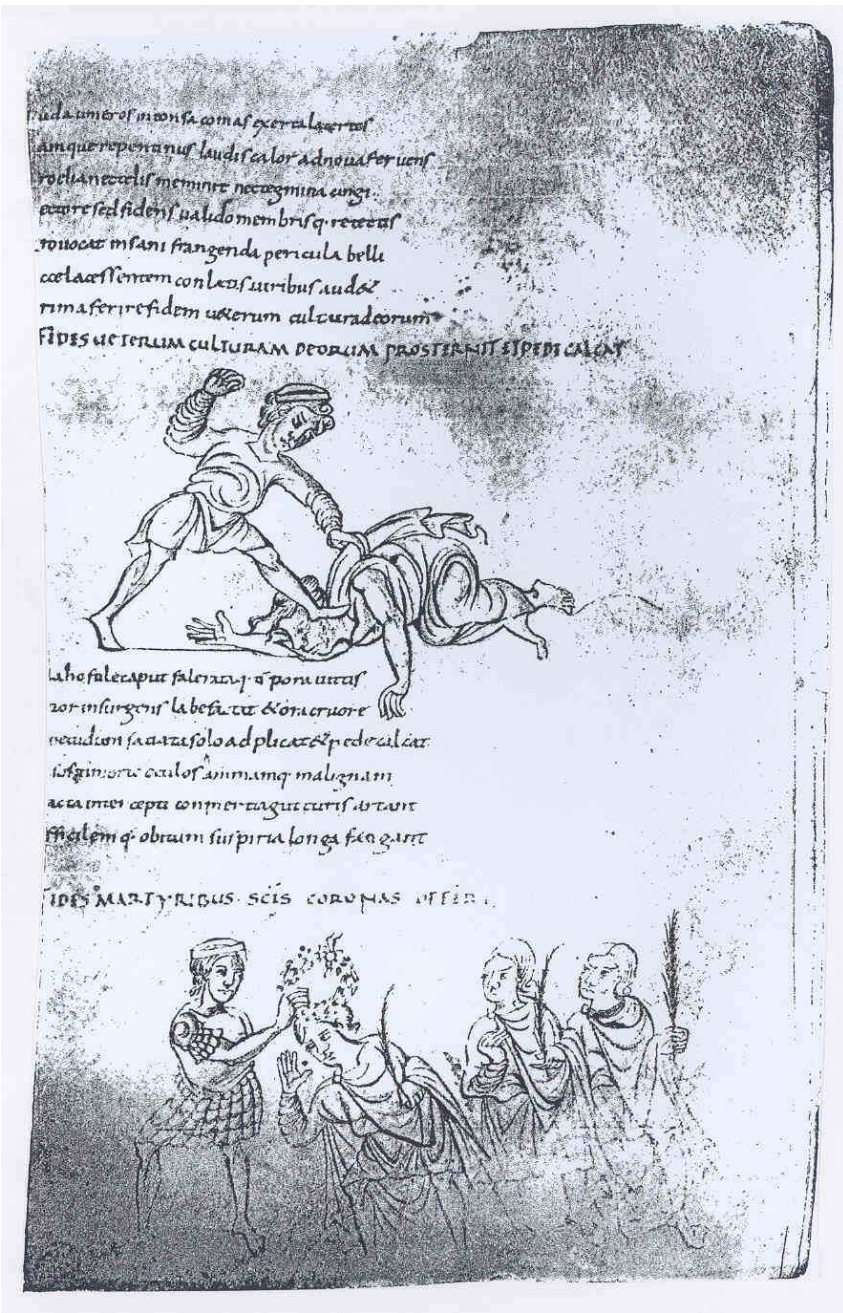 uda umeros intonsa comas exerta lacertos
amque repentinus laudis calor ad noua feruens
roelia nec telis meminit nec tegmina cingi
ectore sed fidens ualido membrisq. retectis
rouocat insani frangenda pericula belli
cce lacessentem conlatis uiribus aud&
rima ferire fidem u&erum cultura deorum
FIDES UETERUM CULTURAM DEORUM PROSTERNIT ET PEDE CALCAT
la caput falerataq. uittis
ior insurgens labefactat & ora cruore
pecudum satiata solo adplicat & pede calcat
oculos animamq. malignam
acta
fficilemq. obitum suspiria longa fatigant
FIDES MARTYRIBUS SCIS CORONAS OFFERT